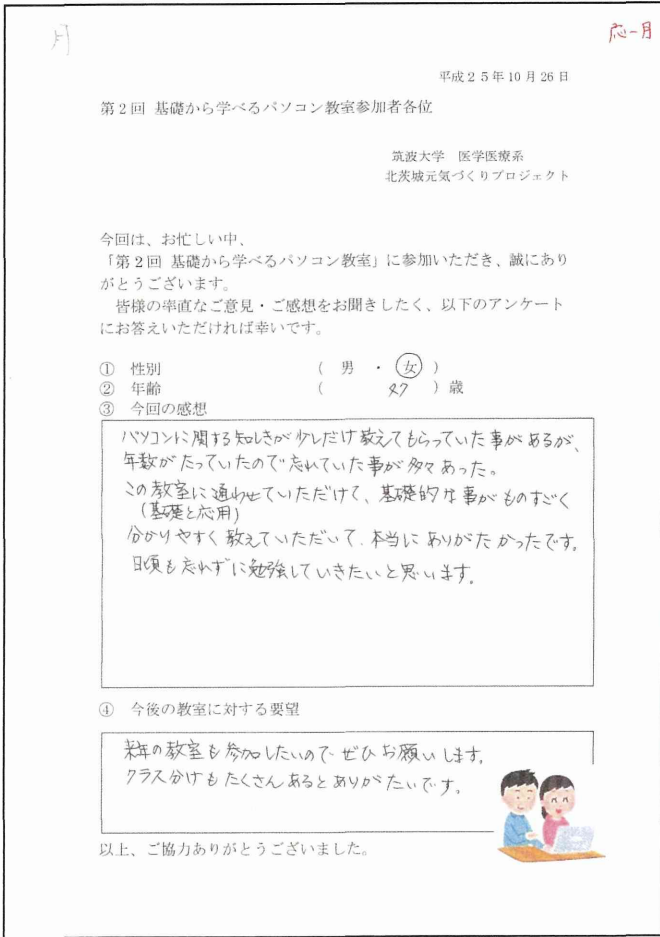 月
応-月
平成25年10月26日
第2回 基礎から学べるパソコン教室参加者各位
筑波大学 医学医療系
北茨城元気づくりプロジェクト
今回は、お忙しい中、
「第2回 基礎から学べるパソコン教室」に参加いただき、誠にあり
がとうございます。
皆様の率直なご意見・ご感想をお聞きしたく、以下のアンケート
にお答えいただければ幸いです。
① 性別 ( 男 ・ 女 )
② 年齢 ( 27 ) 歳
③ 今回の感想
パソコンに関する知しきが少しだけ教えてもらっていた事があるが、
年数がたっていたので忘れていた事が多々あった。
この教室に通わせていただけて、基礎的な事がものすごく
(基礎と応用)
分かりやすく教えていただいて、本当にありがたかったです。
日頃も忘れずに勉強していきたいと思います。
④ 今後の教室に対する要望
来年の教室も参加したいので、ぜひお願いします。
クラス分けもたくさんあるとありがたいです。
以上、ご協力ありがとうございました。